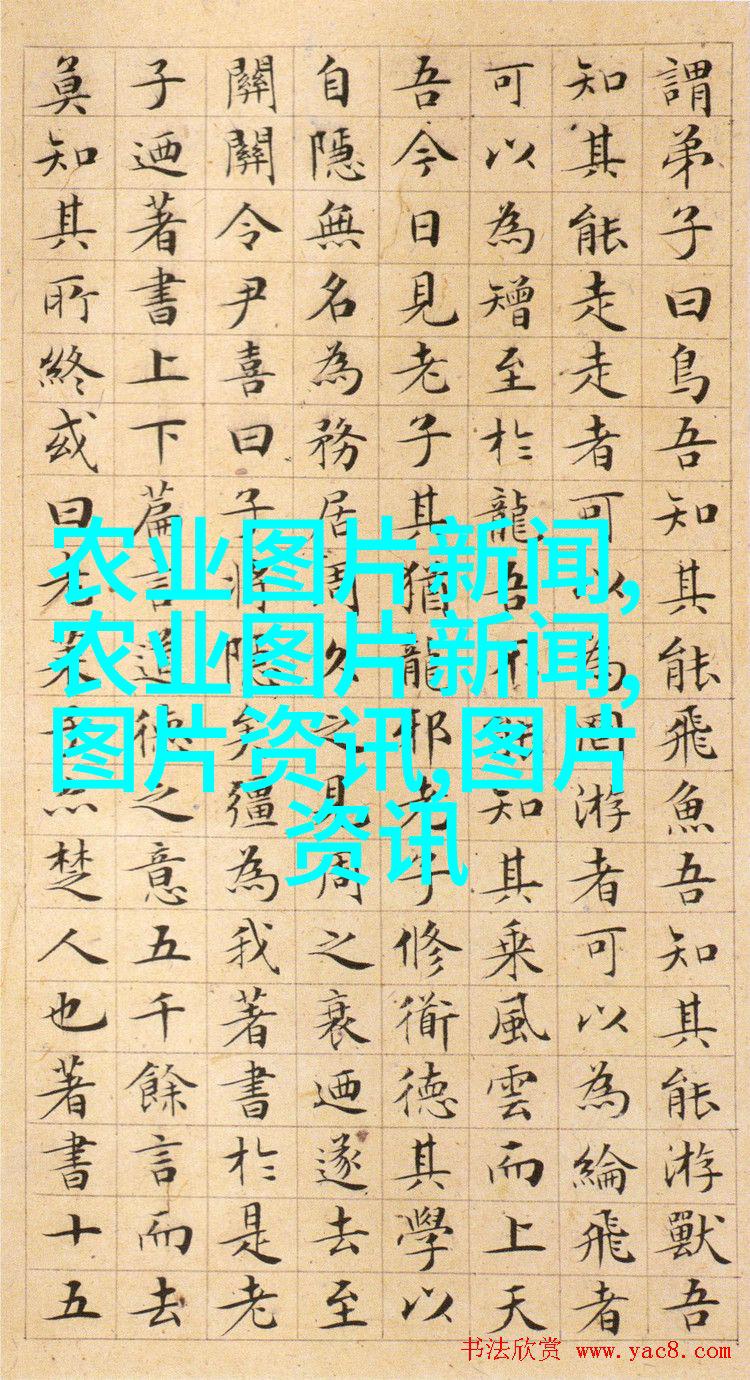 謂弟子曰鳥吾知其能飛魚吾知其能游獸吾
知其能走走者可以為罔游者可以為綸飛者
可以為矰至於龍吾不能知其乗風雲而上天
吾今日見老子其猶龍邪老子修衜德其學以
自隱無名為務居周久之見周之衰迺遂去至
關關令尹喜曰子將隱矣彊為我著書於是老
子迺著書上下篇言道德之意五千餘言而去
莫知其所終或曰老萊子亦楚人也著書十五
农业图片新闻,
农业图片新闻,
图片资讯,图片
资讯
书法欣赏 www.yac8.com